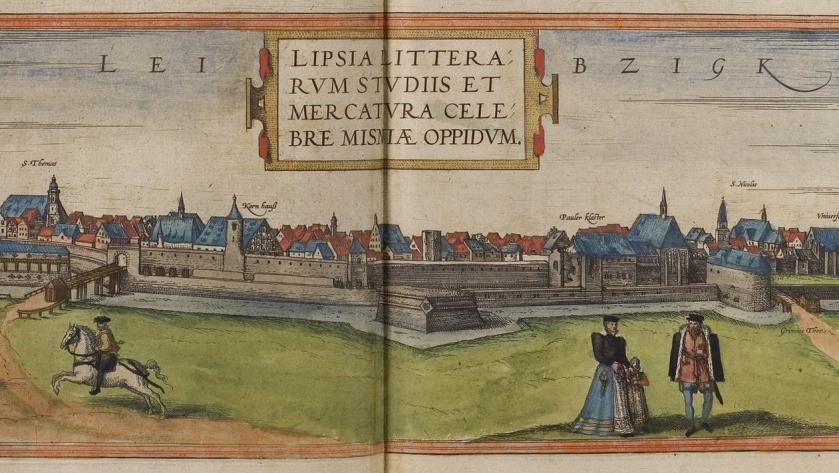 LEI BZIGK
LIPSIA LITTERA:
RVM STVDIIS ET
MERCATVRA CELE:
BRE MISNIÆ OPPIDVM.
S. Thomas
Korn hauß
Pauler kloster
S. Nicolas